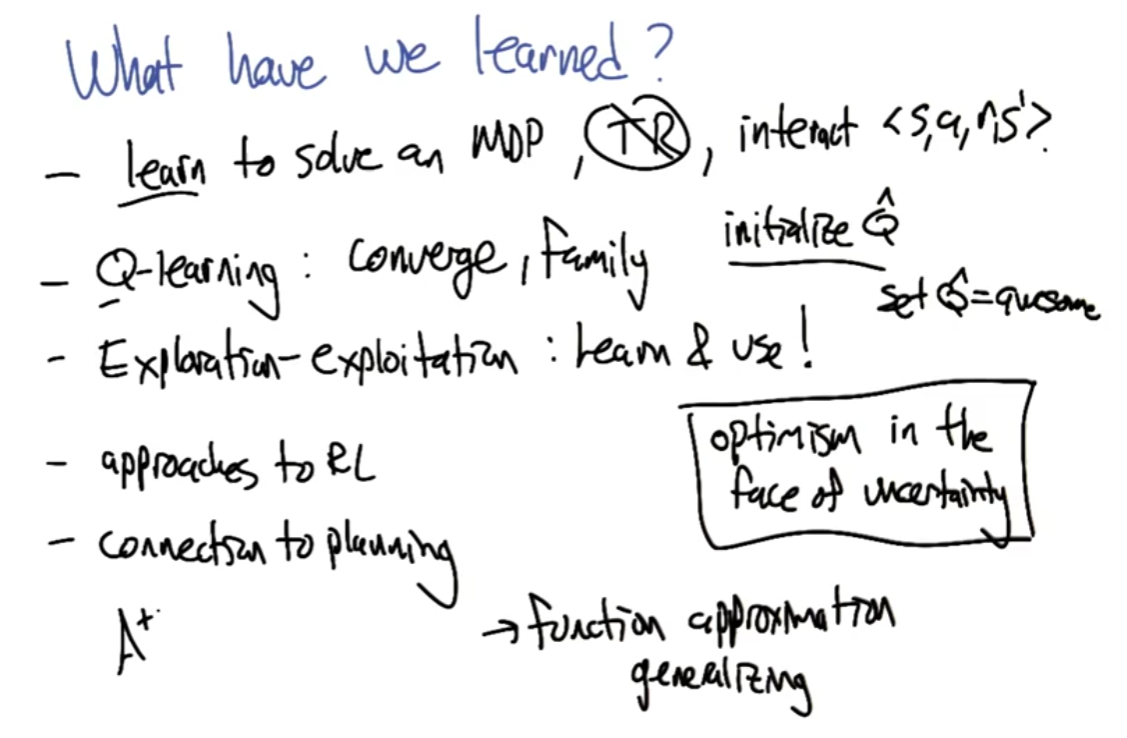 What have we learned?
- learn to solve an MDP, TR, interact <s,a,r,s'>
- Q-learning: converge, family
initialize Q̂
set Q̂=awesome
- Exploration-exploitation: learn & use!
- approaches to RL
optimism in the
face of uncertainty
- connection to planning
A*
→ function approximation
generalizing